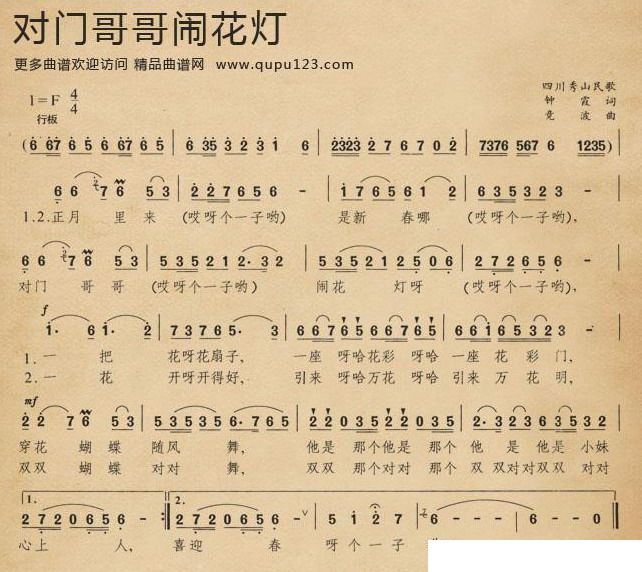 对门哥哥闹花灯
更多曲谱欢迎访问 精品曲谱网 www.qupu123.com
四川秀山民歌
1=F 4/4
钟 霞 词
行板
竞 波 曲
(6 67 6 5 6 67 6 5 6 35 3 2 3 1 6 2323 2 7 6 7 0 2 7376 567 6 1235)
6 6 2 7 6 5 3 2 2 7 6 5 6 - 1 7 6 5 6 1 2 6 3 5 3 2 3 -
1.2.正月 里来 (哎呀个一子哟) 是新 春哪 (哎呀个一子哟),
6 6 2 7 6 5 3 5 3 5 2 1 2· 3 2 5 3 5 2 1 2 5 0 6 2 7 2 6 5 6
对门 哥哥 (哎呀个一子哟) 闹花 灯呀 (哎呀个一子哟),
f
1· 6 1· 2 7 3 7 6 5· 3 6 6 7 6 5 6 6 7 6 5 6 6 1 6 5 3 2 3 -
1. 一 把 花呀花扇子, 一座 呀哈花彩 呀哈 一座 花 彩门,
2. 一 花 开呀开得好, 引来 呀哈万花 呀哈 引来 万 花明,
mf
2 2 7 6 5 3 5 3 5 3 5 6· 7 6 5 2 2 0 3 5 2 2 0 3 5 2· 3 2 3 6 3 5 3 2
穿花 蝴蝶 随风 舞, 他是 那个他是 那个 他 是 他是 小妹
双双 蝴蝶 对对 舞, 双双 那个对对 那个 双 双对对双双 对对
1.
2.
2 7 2 0 6 5 6 - 2 7 2 0 6 5 6 - 5 1 2 7 6 - - 6 - - 0
心上 人, 喜迎 春 呀个一子